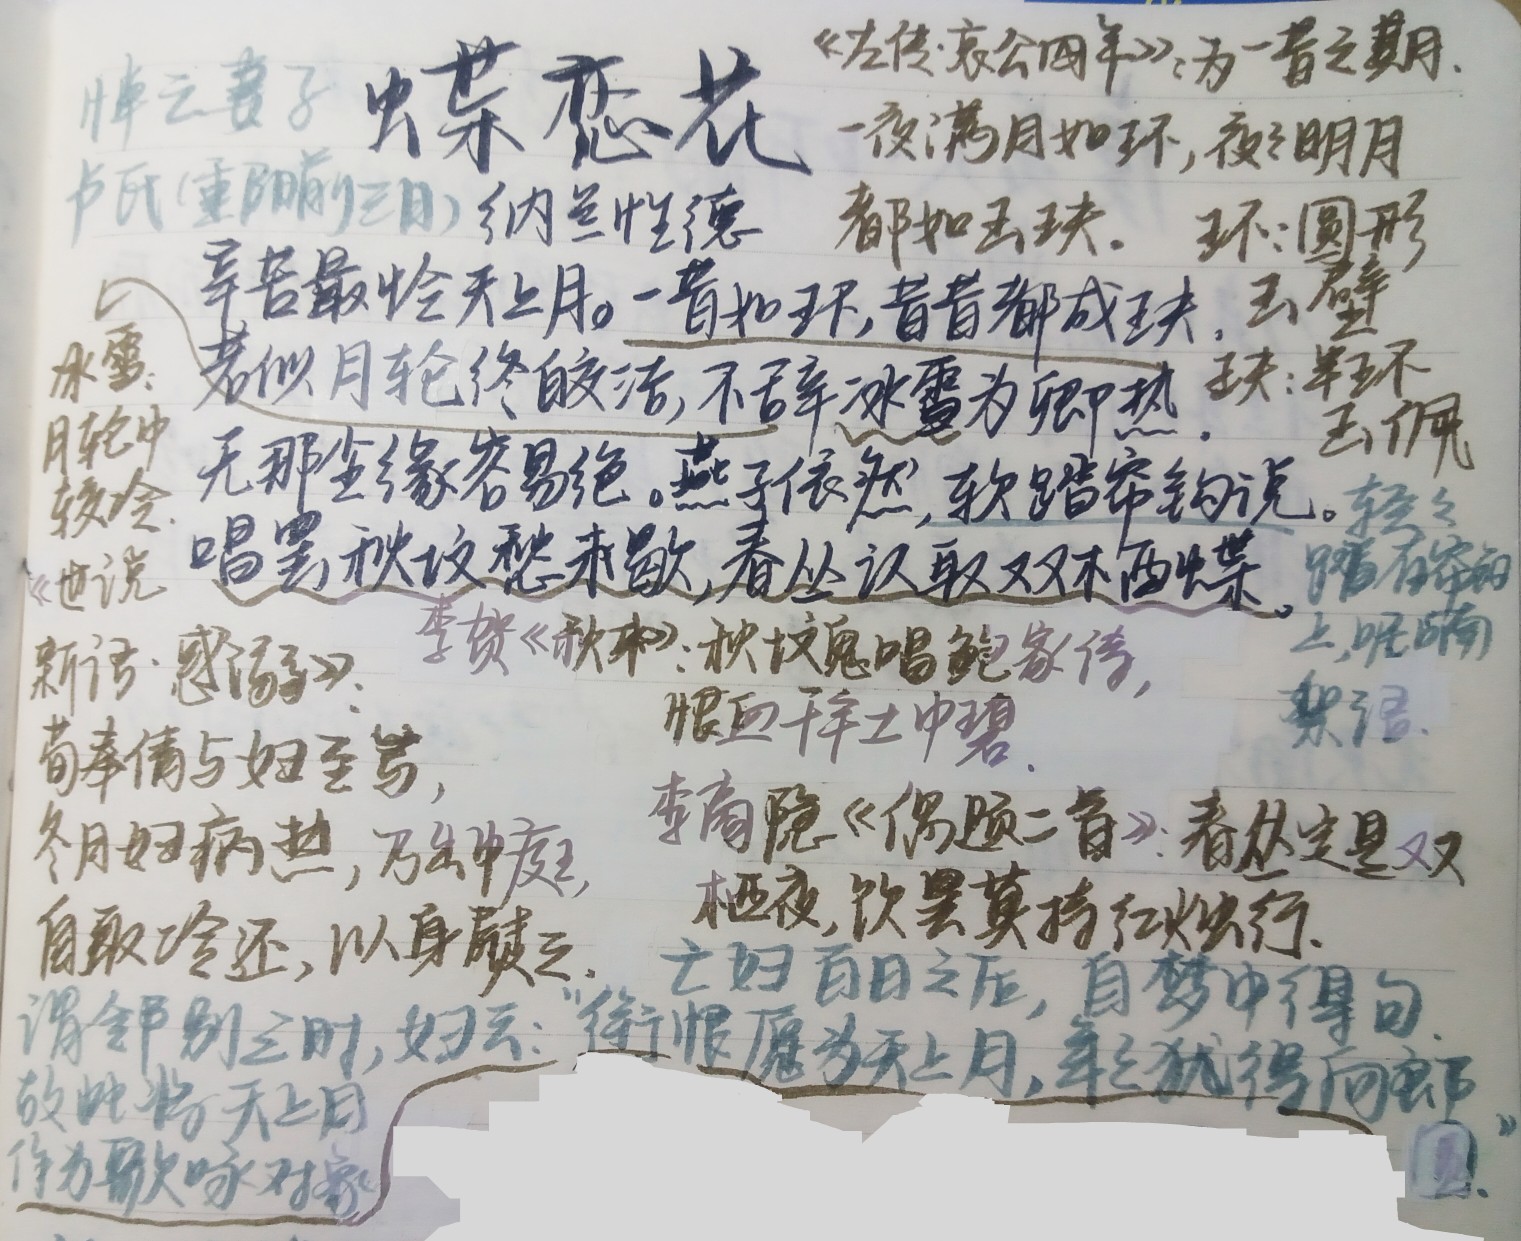 蝶恋花
悼亡妻子
卢氏(重阳前三日)
纳兰性德
《左传·哀公四年》:为一昔之期.
一夜满月如环,夜夜明月
都如玉玦。
环:圆形
玉璧
玦:半环
玉佩
辛苦最怜天上月。一昔如环,昔昔都成玦.
若似月轮终皎洁,不辞冰雪为卿热.
无那尘缘容易绝。燕子依然,软踏帘钩说。
唱罢秋坟愁未歇,春丛认取双栖蝶。
轻轻
踏在帘钩
上,呢喃
絮语.
冰雪:
月轮中
较冷.
《世说
新语·惑溺》:
荀奉倩与妇至笃,
冬月妇病热,乃出中庭,
自取冷还,以身熨之.
李贺《秋来》:秋坟鬼唱鲍家诗,
恨血千年土中碧.
李商隐《偶题二首》:春丛定是双
栖夜,饮罢莫持红烛行.
亡妇百日之后,自梦中得句.
谓邻别之时,妇云:"衔恨愿为天上月,年年犹得向郎
圆."
故此将天上月
作为歌咏对象